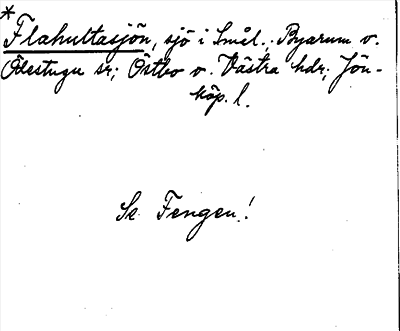 *
Flahultasjön, sjö i Smål.; Byarum o.
Ödestugu sr; Östbo o. Västra hdr; Jön-
köp. l.
Se Fengen!